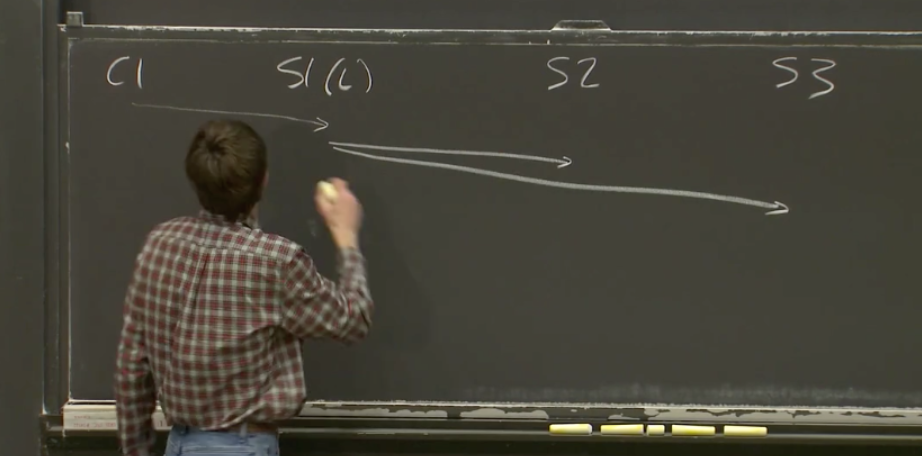 C1 S1 (L) S2 S3